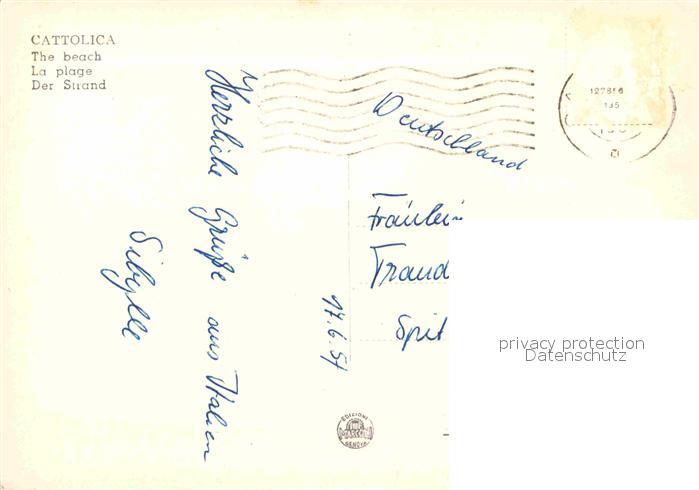 CATTOLICA
The beach
La plage
Der Strand
Herzliche Grüße aus Italien
Sibylle
17.6.57
Deutschland
Fräulein
Traud
Spit
EDIZIONE
GENOVA
privacy protection
Datenschutz